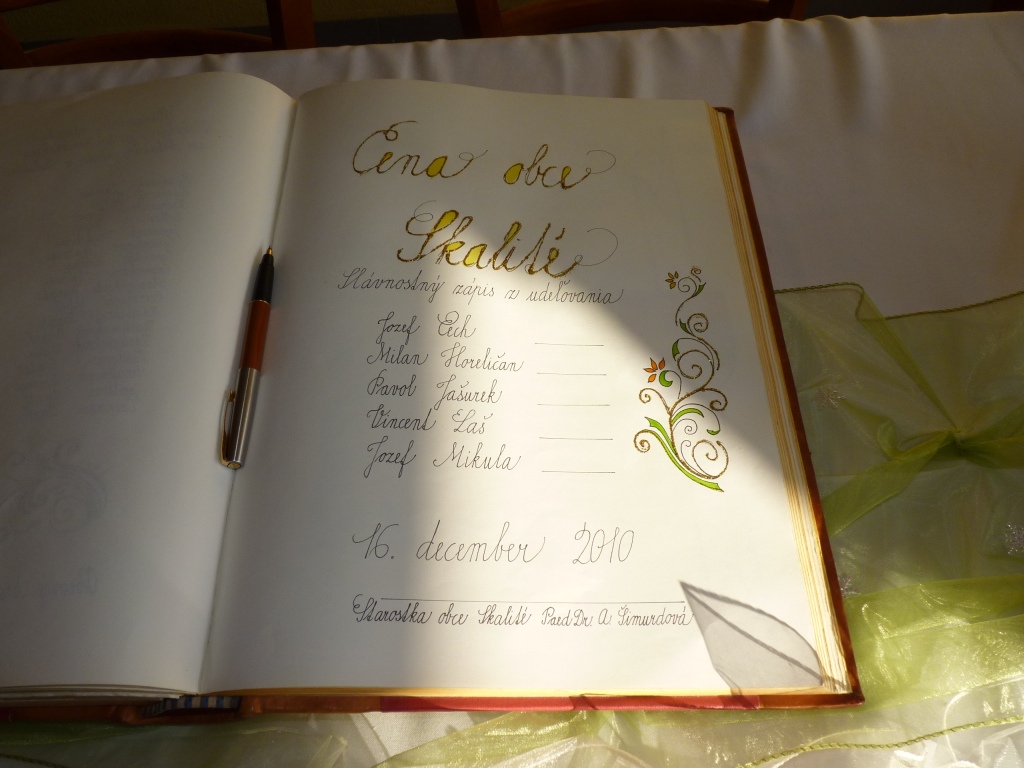 Cena obce
Skalité
Slávnostný zápis z udeľovania
Jozef Čech
Milan Horeličan
Pavol Jašurek
Vincent Laš
Jozef Mikula
16. december 2010
Starostka obce Skalité PaedDr. A Šimurdová